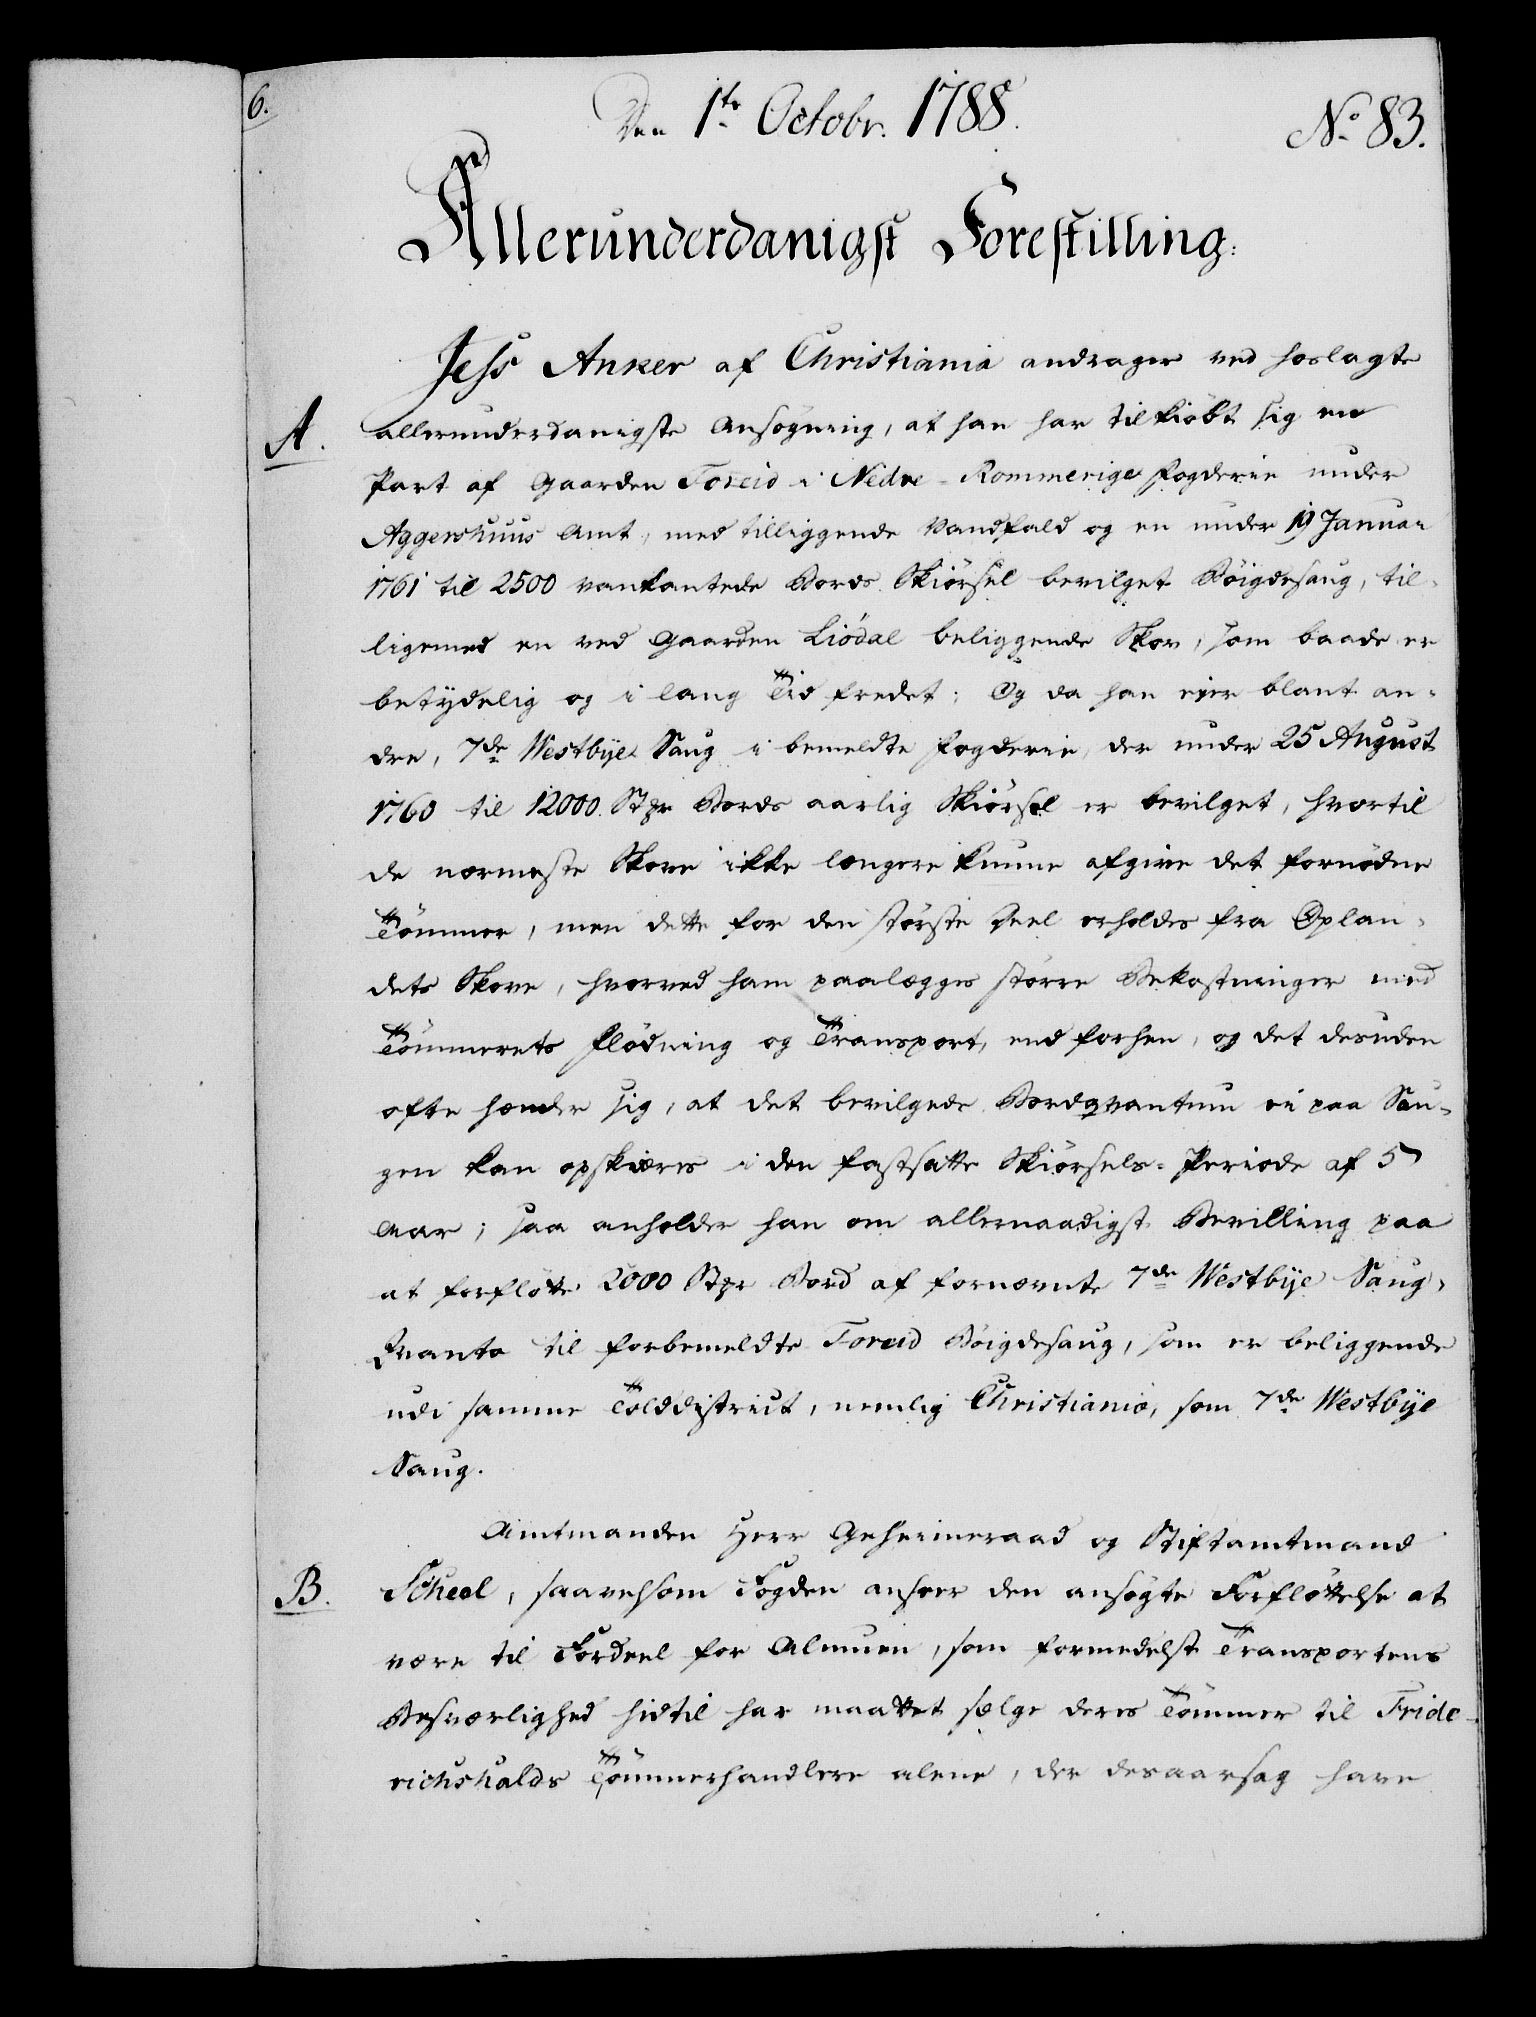 6.
Den 1te Octobr. 1788.
No 83.
Allerunderdanigst Forestilling:
Jess Anker af Christiania andrager ved hoslagte
A.
allerunderdanigste Ansøgning, at han har tilkiøbt sig en
Part af Gaarden Foseid i Nedre-Rommerige Fogderie under
Aggershuus Amt, med tilliggende Vandfald og en under 19 Januar
1761 til 2500 vankantede Bords Skiørsel bevilget Böigdesaug, til-
ligemed en ved Gaarden Liödal beliggende Skov, som baade er
betydelig og i lang Tid fredet; Og da han ejer blant an-
dre, 7de Westbye Saug i bemeldte Fogderie, der under 25 August
1760 til 12000 Stpr Bords aarlig Skiørsel er bevilget, hvortil
de nærmeste Skove ikke længere kunne afgive det fornödne
Tömmer, men dette for den störste Deel erholdes fra Oplan-
dets Skove, hvorved ham paalægges större Bekostninger med
Tömmerets Flödning og Transport, end forhen, og det desuden
ofte hænder sig, at det bevilgede Bordqvantum ei paa Sau-
gen kan opskiæres i den fastsatte Skiørsels-Periode af 5
Aar; saa anholder han om allernaadigst Bevilling paa
at forflötte 2000 Stpr Bord af fornævnte 7de Westbye Saug-
Qvanto til forbemeldte Foreid Böigdesaug, som er beliggende
udi samme Tolddistrict, nemlig Christiania, som 7de Westbye
Saug.
Amtmanden Herr Geheimeraad og Stiftamtmand
B.
Scheel, saavelsom Fogden anseer den ansögte Forflöttelse at
være til Fordeel for Almuen, som formedelst Transportens
Besværlighed hidtil har maattet sælge deres Tömmer til Fride-
richshalds Tömmerhandlere alene, der desaarsag have